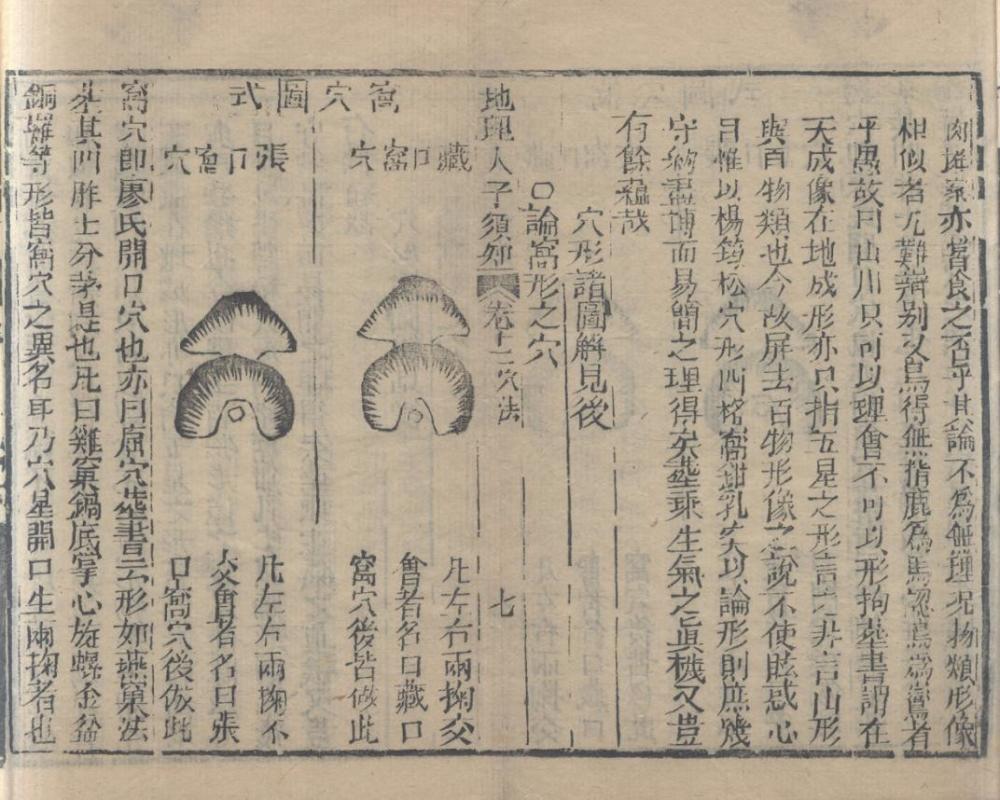 肉堆案亦嘗食之否乎其論不為無理况物類形像
相似者尤難辯别又烏得無指鹿為馬認烏為鸞者
乎愚故曰山川只可以理會不可以形拘葬書謂在
天成像在地成形亦只指五星之形言之非言山形
與百物類也今故屏去百物形像之說不使眩惑心
目惟以楊筠松穴形四格窩鉗乳突以論形則庶幾
守約盡博而易簡之理得矣葬乘生氣之眞機又豈
有餘蘊哉
穴形諸圖解見後
○論窩形之穴
地理人子須知
卷十二穴法
七
窩穴圖式
藏口窩穴
凡左右兩掬交
會者名曰藏口
窩穴後皆倣此
張口窩穴
凡左右兩掬不
交會者名曰張
口窩穴後倣此
窩穴即廖氏開口穴也亦曰窟穴葬書云形如燕窠法
葬其凹胙土分茅是也凡曰雞窠鍋底掌心旋螺金盆
銅鑼等形皆窩穴之異名耳乃穴星開口生兩掬者也